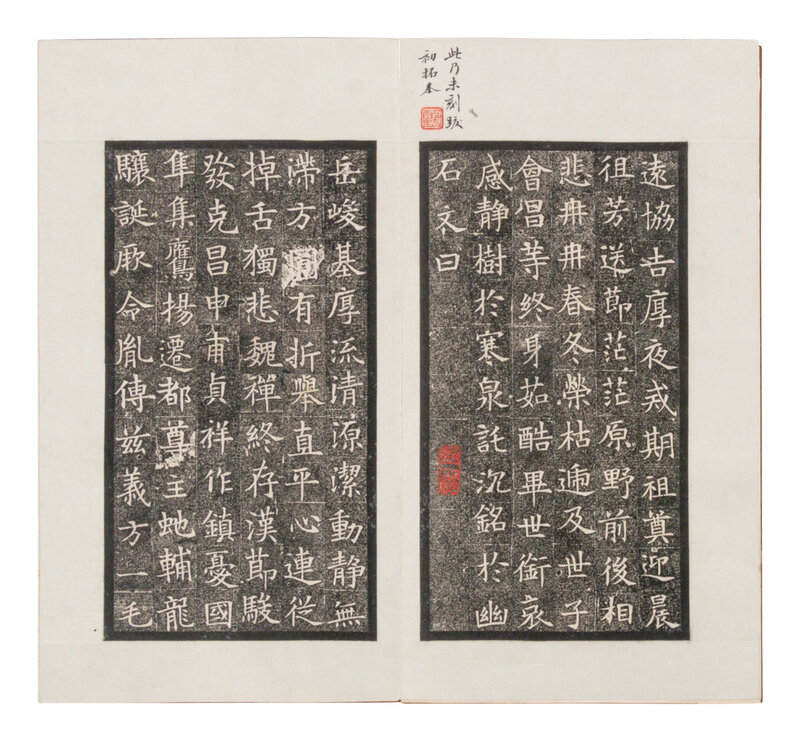 此乃未刻跋
初拓本
遠協吉厚夜戒期祖奠迎晨
徂芳送節茫茫原野前後相
悲冉冉春冬榮枯遞及世子
會昌等終身茹酷畢世銜哀
感靜樹於寒泉託沉銘於幽
石文曰
岳峻基厚流清源潔動靜無
滯方圓有折舉直平心連從
掉舌獨悲魏禪終存漢節駿
發克昌申甫貞祥作鎮憂國
隼集鷹揚遷都尊主虵輔龍
驤誕厥令胤傳茲義方一毛